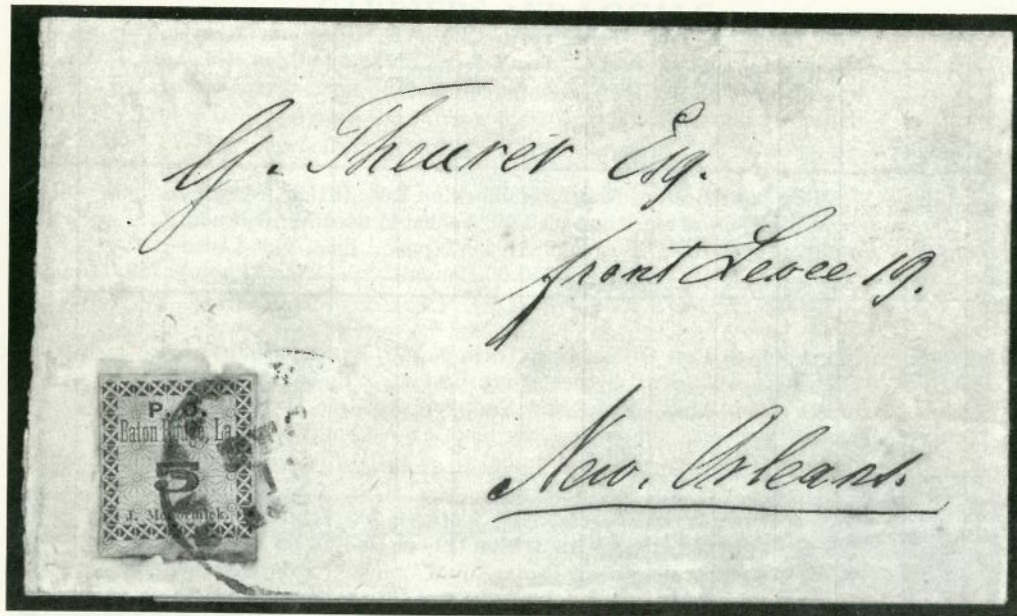 G. Theurer Esq.
front Levee 19.
New. Orleans.
P. O.
Baton Rouge, La
5
J. McCormick.